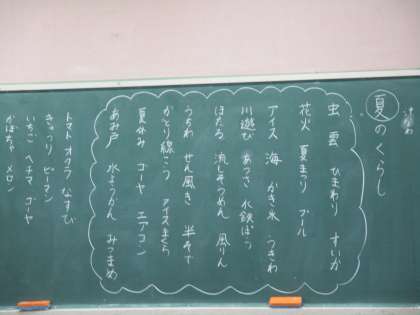 夏のくらし
虫 雲 ひまわり すいか
花火 夏まつり プール
アイス 海 かき氷 うきわ
川遊び あつさ 水鉄ぽう
ほたる 流しそうめん 風りん
うちわ せん風き 半そで
かとり線こう アイスまくら
夏休み ゴーヤ エアコン
あみ戸 水ようかん みつまめ
トマト オクラ なすび
きゅうり ピーマン
いちご ヘチマ ゴーヤ
かぼちゃ メロン